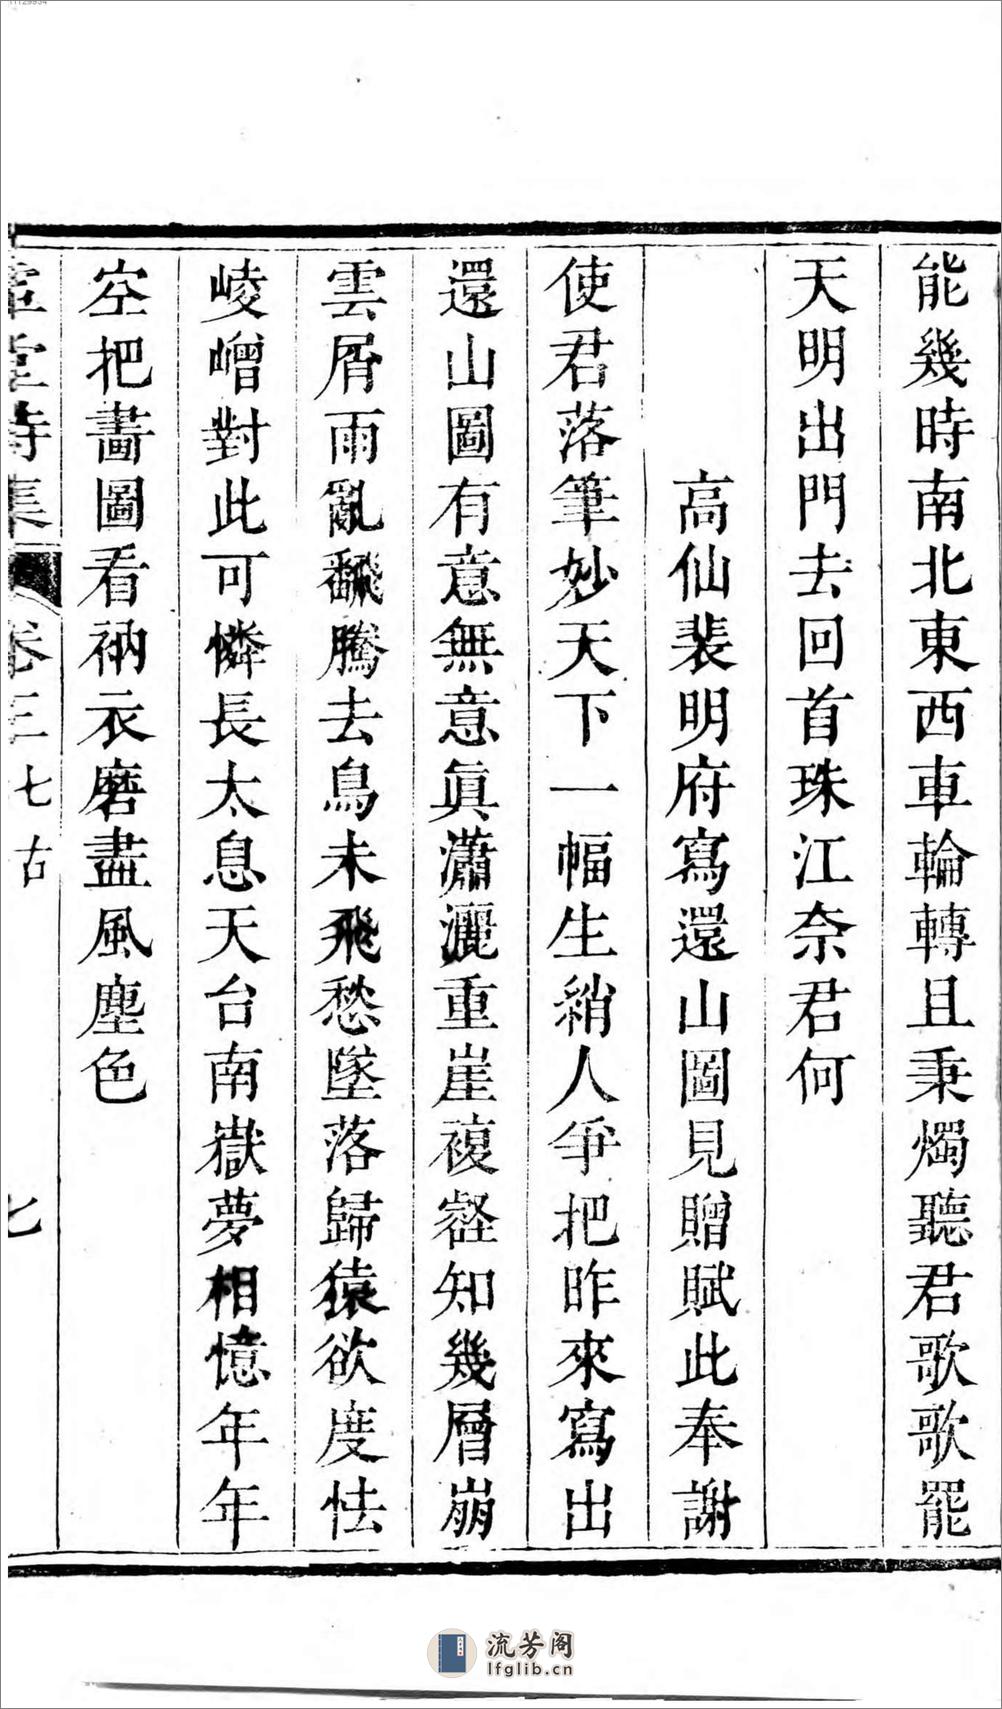 能幾時南北東西車輪轉且秉燭聽君歌歌罷
天明出門去回首珠江奈君何
高仙裴明府寫還山圖見贈賦此奉謝
使君落筆妙天下一幅生綃人爭把昨來寫出
還山圖有意無意眞瀟灑重崖複壑知幾層崩
雲屑雨亂飜騰去鳥未飛愁墜落歸猿欲度怯
崚嶒對此可憐長太息天台南嶽夢相憶年年
空把畵圖看衲衣磨盡風塵色
堂詩集 卷三 七古 七
流芳阁
lfglib.cn
11129934